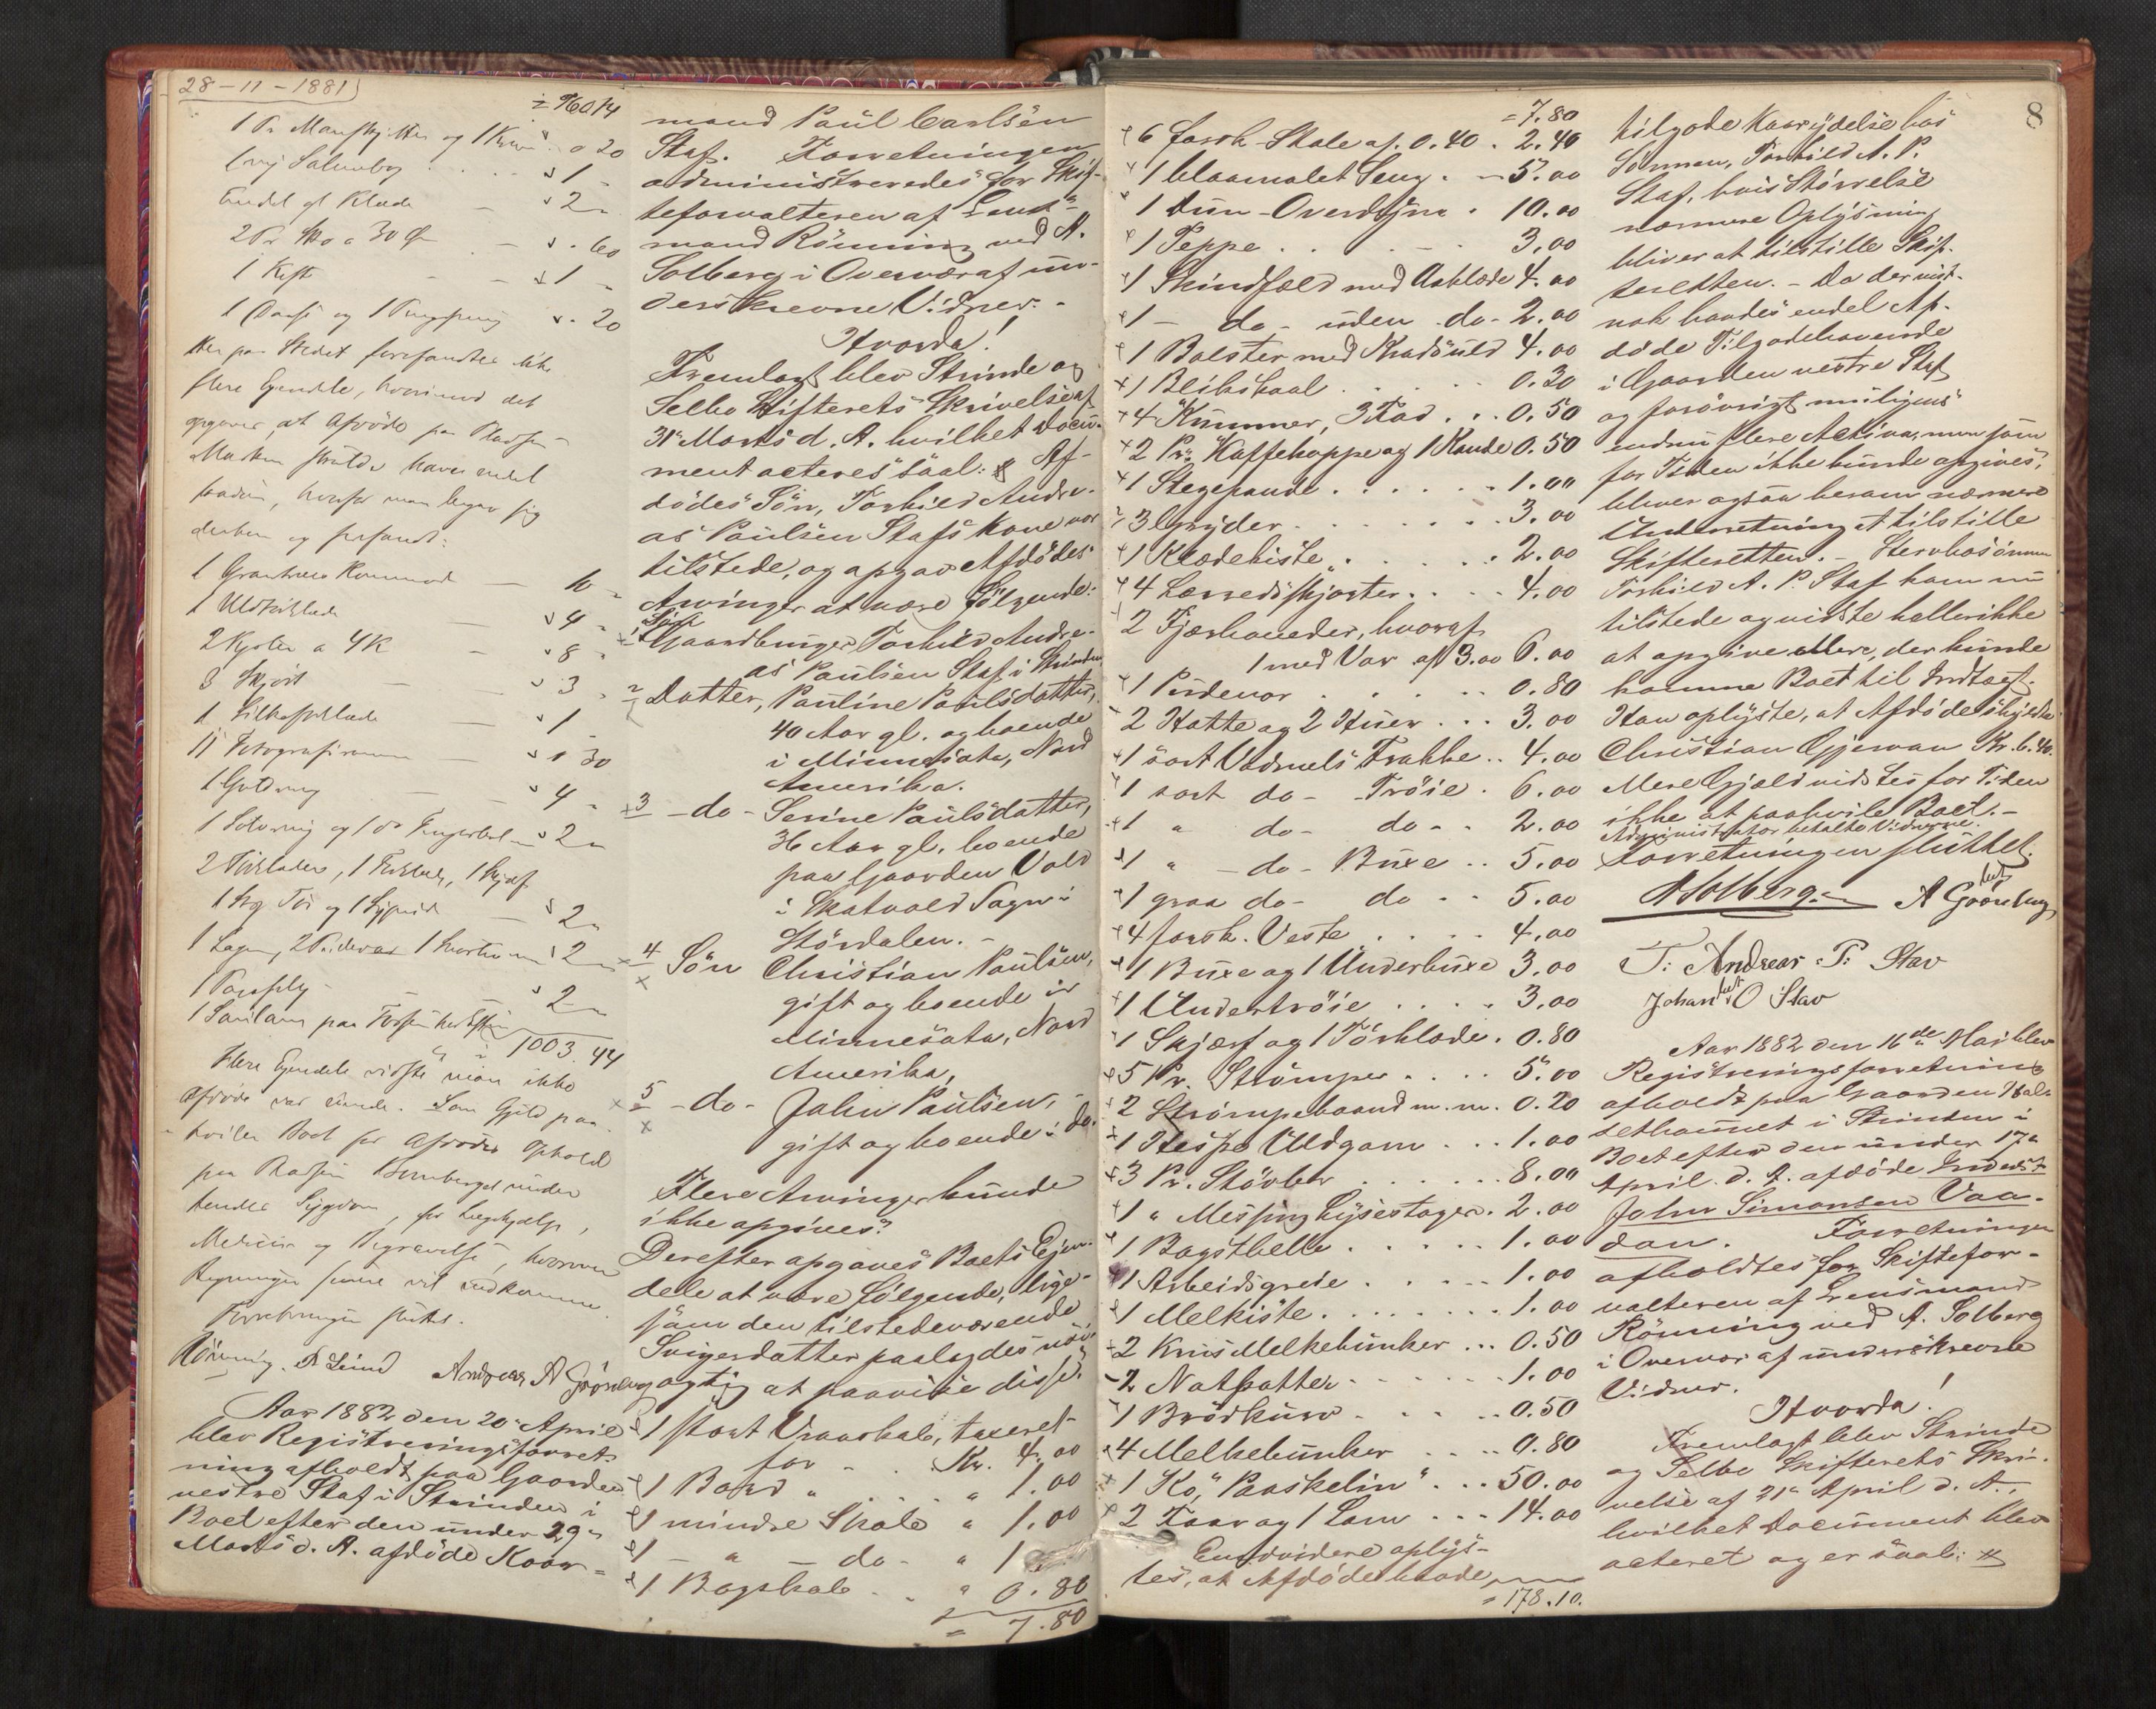 28-11-1881
1 Pr Manskjetter og 1 Krave " 20
1 ny Salmebog 1 "
Endel gl Klæde 2 "
2 Pr Sko a 30 Øre " 60
1 Kiste 1 "
20
Her paa Stedet forefandtes ikke
flere Eiendele, hvorimod det
opgaves, at Afdøde paa Pladsen
skulde have endel
hvorfor man begav sig
derhen og forefandt:
1 Kommode 10 "
1 Uldtørklæde 4 "
2 Kjoler a 4 K 8 "
3 Skjørt 3 "
1 Silketørklæde 1 "
11 Fotografirammer 1 30
1 Guldring 4 "
1 Sølvring og 1 do Fingerbøl 2 "
2 Tørklæder, 1 Forklæde, 1 Skjærf
2 "
1 Lagen, 2 Pudevar 2 "
1 Paraply 2 "
1003.44
Flere Eiendele vidste man ikke
Afdøde var eiende. Som Gjæld paa-
hviler Boet for Afdødes Ophold
paa Pladsen under
hendes Sygdom, for Lægehjælp,
Medicin og Begravelse, hvorom
Regninger senere vil indkomme.
Forretningen sluttet.
Rönning. Andreas A Gröneng
Aar 1882 den 20de April
blev Registreringsforret-
ning afholdt paa Gaarden
vestre Staf i Strinden i
Boet efter den under 29de
Marts d. A. afdöde Kaar-
mand Paul Carlsen
Staf. Forretningen
administreredes for Skif-
teforvalteren af Lens-
mand Rönning ved A.
Solberg i Overvær af un-
derskrevne Vidner.-
Hvorda!
Fremlagt blev Strinde og
Selbo Skifterets Skrivelse af
31te Marts d. A. hvilket Docu-
ment acteres saal: Af-
dödes Sön, Torkild Andre-
as Paulsen Stafs Kone var
tilstede, og opgav Afdödes
Arvinger at være Fölgende:
1 Sön Gaardbruger Torkild Andre-
as Paulsen Staf, i Strinden
2 Datter, Pauline Paulsdatter,
40 Aar gl. og boende
i Minnesota, Nord
Amerika.
3 - do - Serine Paulsdatter,
36 Aar gl. boende
paa Gaarden Vold
i Skatvold Sogn i
Stördalen.-
4 Sön Christian Paulsen,
gift og boende i
Minnesota, Nord
Amerika,
5 - do - John Paulsen,
gift og boende i do.
Flere Arvinger kunde
ikke opgives.
Derefter opgaves Boets Eien-
dele at være fölgende, lige-
som den tilstedeværende
Svigerdatter paalagdes nöi-
agtig at paavise disse.
1 stort Vraaskab, taxeret
for Kr. 4.00
1 Bord " " 1.00
1 mindre Skab " 1.00
1 - " - do - " 1
1 Bagskab " 0.80
= 7.80
8
= 7.80
6 forsk. Stole af. 0.40 . 2.40
1 blaamalet Seng . - 5.00
1 Dun-Overdyne . 10.00
1 Teppe . . . 3.00
1 Skindfæld med Aaklæde 4.00
1 - do - uden - do - 2.00
1 Bolster med Krøduld 4.00
1 Blikskaal . . . 0.30
4 Kummer, 3 Fad . . . 0.50
2 Pr. Kaffekoppe og 1 Kande 0.50
1 Stegepande . . . 1.00
3 Gryder . . . 3.00
1 Klædekiste . . . 2.00
4 Lærredsskjorter . . . 4.00
2 Fjærhoveder, hvoraf
1 med Var af 3.00 6.00
1 Pudevar . . . 0.80
2 Hatte og 2 Huer . . . 3.00
1 sort Vadmels Frakke . . 4.00
1 sort do - Tröie . 6.00
1 " do - do - . 2.00
1 " - do - Buxe . . 5.00
1 graa do - do - . 5.00
4 forsk. Veste . . . 4.00
1 Buxe og 1 Underbuxe 3.00
1 Undertröie . . . 3.00
1 Skjærf og 1 Törklæde . 0.80
5 Pr. Strömper . . . 5.00
2 Strömpebaand m. m. 0.20
1 Hespe Uldgarn . . . 1.00
3 Pr. Stövler . . . 8.00
1 " Messing Lysestager . 2.00
1 Bagsthelle . . . 1.00
1 Arbeidsgreie . . . 1.00
1 Melkiste . . . 1.00
2 Krus Melkebunker . . . 0.50
2 Natpotter . . . 1.00
1 Brödkurv . . . 0.50
4 Melkebunker . . . 0.80
1 Ko, "Paaskelin" . . . 50.00
2 Faar og 1 Lam . . . 14.00
Endvidere oplys-
tes, at Afdöde havde
= 178.10.
tilgode Kaarydelse hos
Sönnen, Torkild A. P.
Staf, hvis Störrelse
nærmere Oplysning
bliver at tilstille Skif-
teretten. - Da der vist-
nok havdes endel Af-
döde Tilgodehavende
i Gaarden vestre Staf
og forövrigt muligens
endnu flere Activa, men som
for Tiden ikke kunde opgives,
bliver ogsaa herom nærmere
Underretning at tilstille
Skifteretten. - Stervbosönnen
Torkild A. P. Staf kom nu
tilstede og vidste heller ikke
at opgive mere, der kunde
komme Boet til Indtægt.
Han oplyste, at Afdöde skyldte
Christian Gjervan Kr. 6.40.
Mere Gjæld vidstes for Tiden
ikke at paahvile Boet.-
Administrator betalte Vidnerne.
Forretningen sluttet.
A Solberg. A Grönseng
T: Andreas P: Stav
Johan O Stav
Aar 1882 den 16de Mai blev
Registreringsforretning
afholdt paa Gaarden Hal-
sethaunet i Strinden i
Boet efter den under 17de
April d. A. afdöde Inderst
John Simonsen Vaa-
dan. Forretningen
afholdtes for Skiftefor-
valteren af Lensmand
Rönning ved A. Solberg
i Overvær af underskrevne
Vidner.
Hvorda!
Fremlagt blev Strinde
og Selbo Skifterets Skri-
velse af 21de April d. A.,
hvilket Document blev
acteret og er saal: